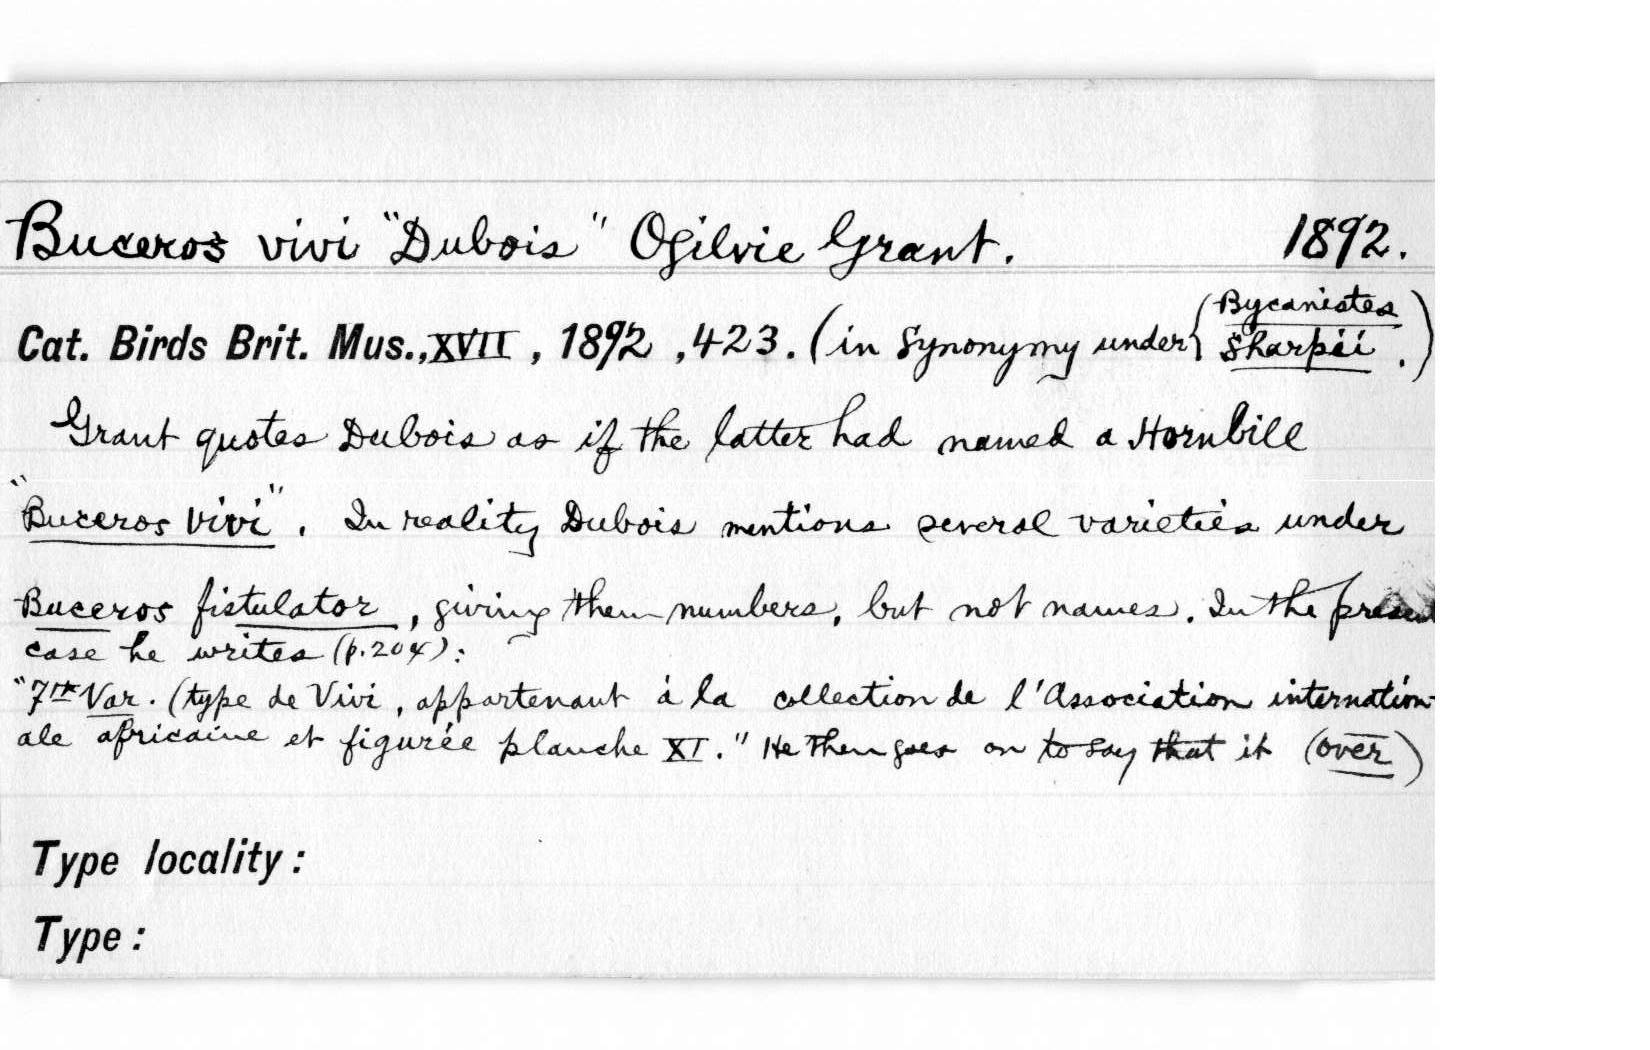 Buceros vivi "Dubois" Ogilvie Grant. 1892.
Cat. Birds Brit. Mus., XVII, 1892, 423. (in synonymy under { Bycanistes sharpii.)
Grant quotes Dubois as if the latter had named a Hornbill
"Buceros vivi". In reality Dubois mentions several varieties under
Buceros fistulator, giving them numbers, but not names. In the present
case he writes (p.204):
"7me Var. (type de Vivi, appartenant à la collection de l'Association internation-
ale africaine et figurée planche XI." He then goes on to say that it (over)
Type locality:
Type: